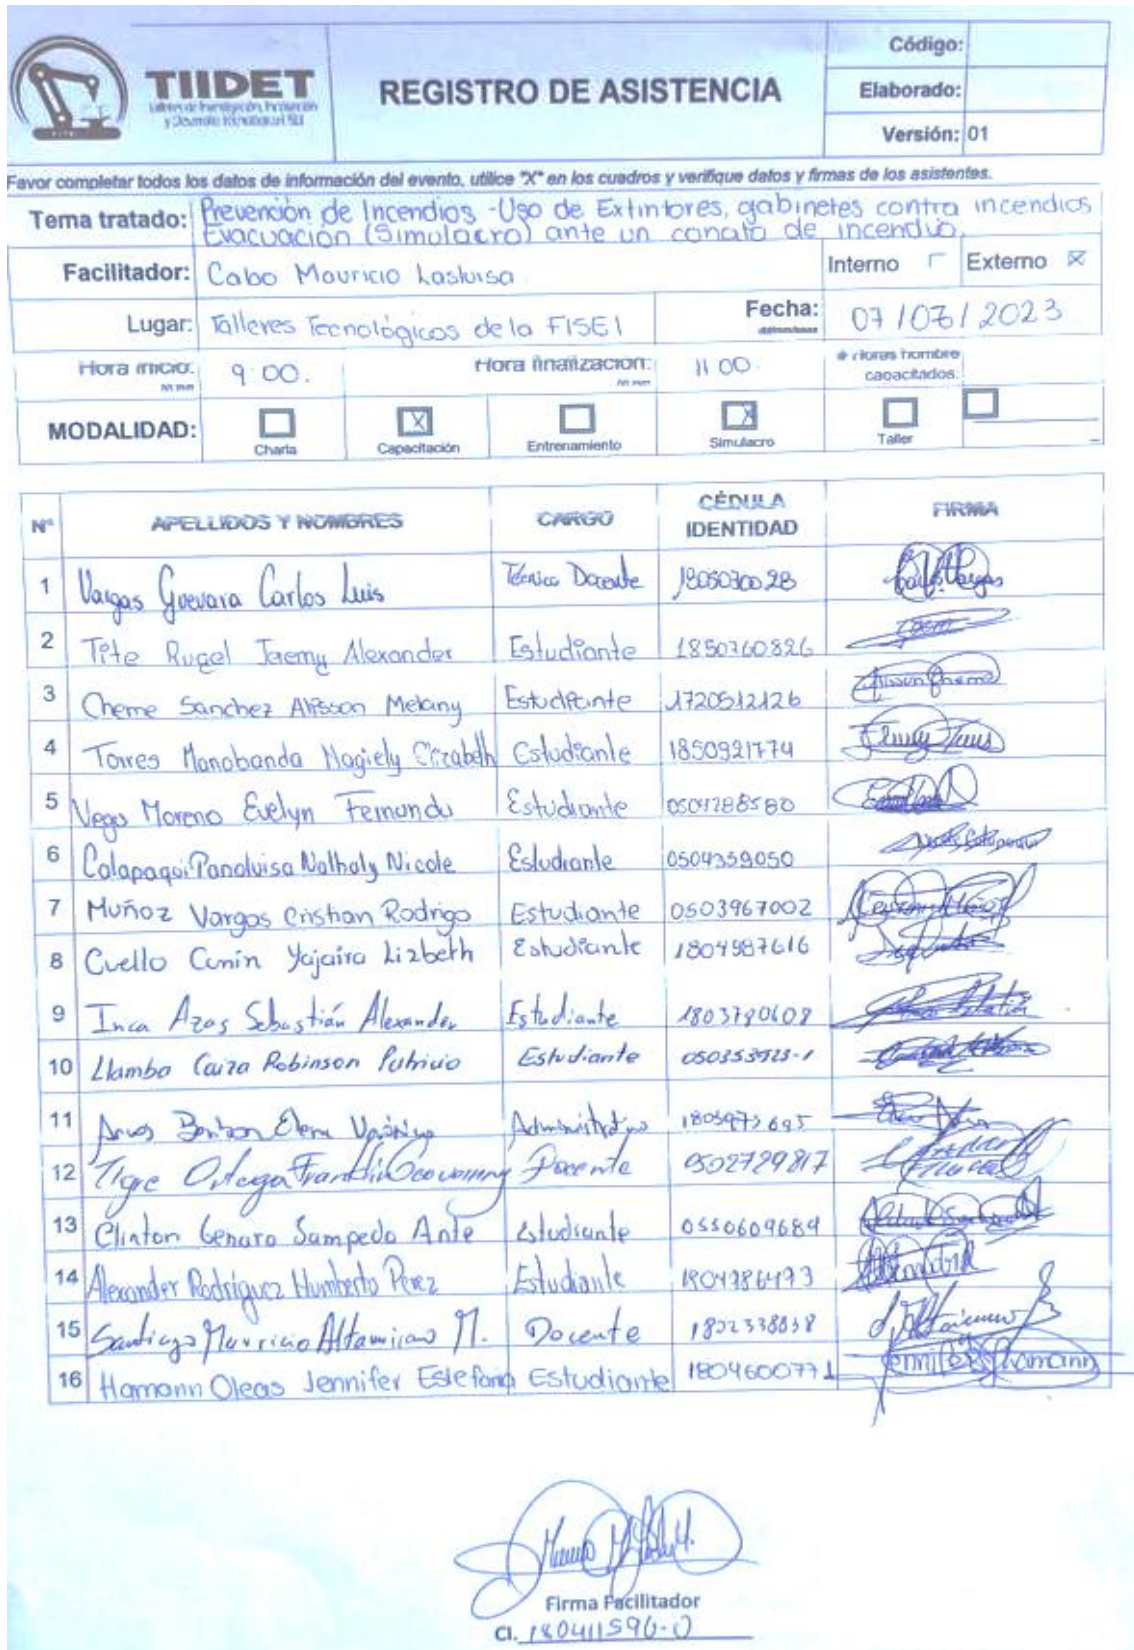 TIIDET
Talleres de Investigación, Innovación
y Desarrollo Tecnológico
REGISTRO DE ASISTENCIA
Código:
Elaborado:
Versión: 01
Favor completar todos los datos de información del evento, utilice "X" en los cuadros y verifique datos y firmas de los asistentes.
Tema tratado: Prevención de Incendios - Uso de Extintores, gabinetes contra incendios
Evacuación (Simulacro) ante un conato de incendio.
Facilitador: Cabo Mauricio Lasluisa Interno Externo X
Lugar: Talleres Tecnológicos de la FISEI Fecha: 07/07/2023
Hora inicio: 9:00. Hora finalización: 11 00. # Horas hombre capacitados:
hh mm hh mm
MODALIDAD: Charla X Capacitación Entrenamiento X Simulacro Taller
N° APELLIDOS Y NOMBRES CARGO CÉDULA IDENTIDAD FIRMA
1 Vargas Guevara Carlos Luis Técnico Docente 1805030028
2 Tite Rugel Jeremy Alexander Estudiante 1850760826
3 Cheme Sanchez Alisson Melany Estudiante 1720512126
4 Torres Manobanda Nagiely Elizabeth Estudiante 1850921774
5 Vega Moreno Evelyn Fernanda Estudiante 0504288580
6 Calapaqui Panoluisa Nathaly Nicole Estudiante 0504359050
7 Muñoz Vargas Cristhan Rodrigo Estudiante 0503967002
8 Cuello Cunin Yajaira Lizbeth Estudiante 1804987616
9 Inca Azas Sebastián Alexander Estudiante 1803780608
10 Llamba Caiza Robinson Patricio Estudiante
11 Elena Verónica Administrativo
12 Tigre Ortega Franklin Geovanny Docente 0502729817
13 Clinton Genaro Sampedo Ante Estudiante 0550609689
14 Alexander Rodríguez Humberto Pérez Estudiante 1804786493
15 Santiago Mauricio Altamirano M. Docente 1802338838
16 Hamann Oleas Jennifer Estefania Estudiante 1804600771 Jennifer Hamann
Firma Facilitador
CI. 180411596-0